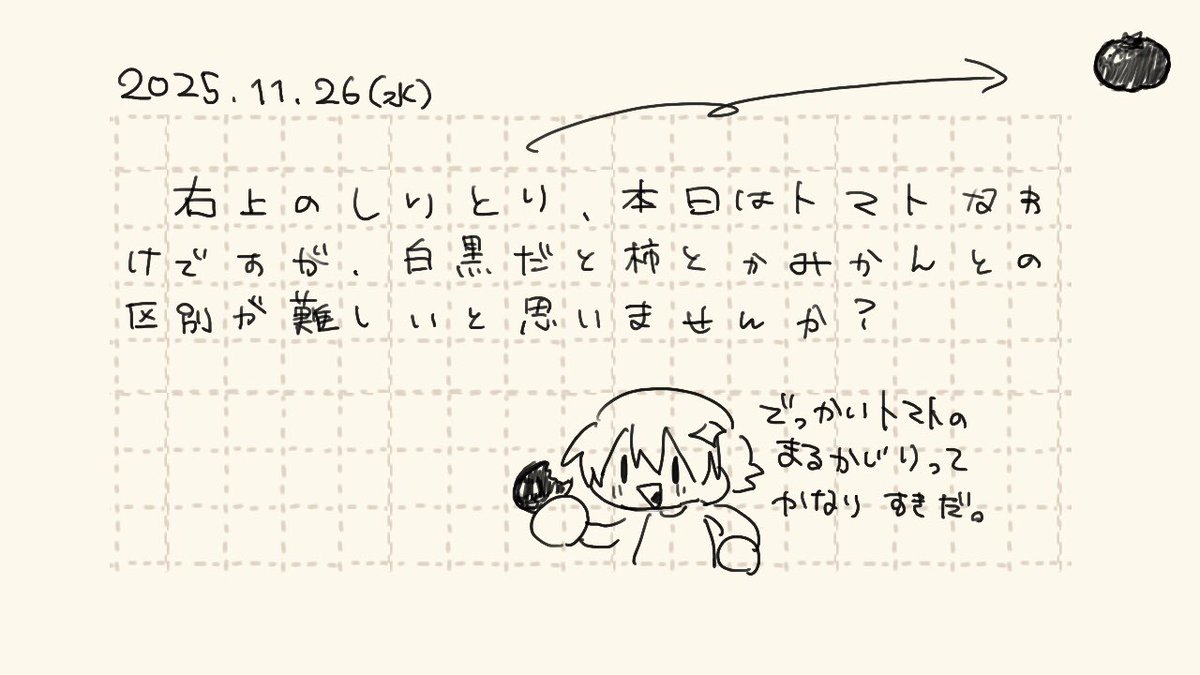 2025.11.26(水)
右上のしりとり、本日はトマトなわ
けですが、白黒だと柿とかみかんとの
区別が難しいと思いませんか？
でっかいトマトの
まるかじりって
かなりすきだ。